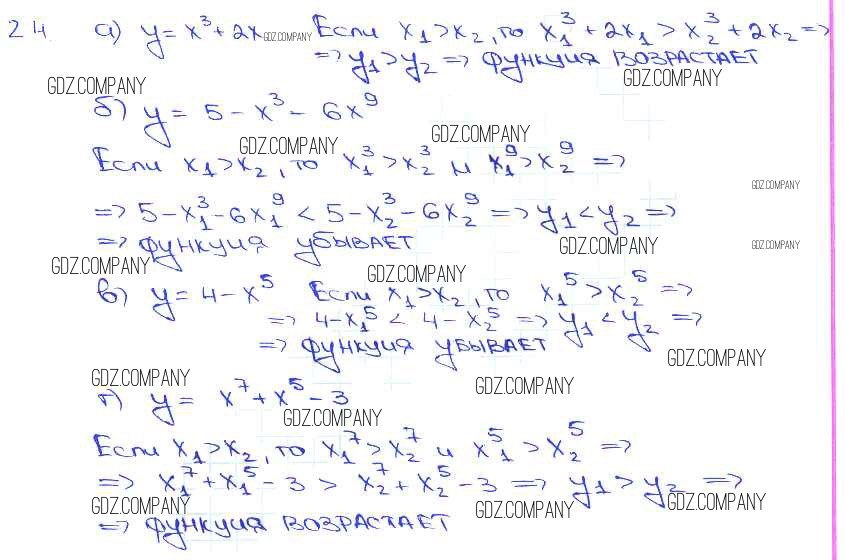 24. а) y = x³ + 2x GDZ.COMPANY Если x₁ > x₂, то x₁³ + 2x₁ > x₂³ + 2x₂ =>
=> y₁ > y₂ => функция возрастает
GDZ.COMPANY GDZ.COMPANY
б) y = 5 - x³ - 6x⁹
GDZ.COMPANY GDZ.COMPANY
Если x₁ > x₂, то x₁³ > x₂³ и x₁⁹ > x₂⁹ =>
GDZ.COMPANY
=> 5 - x₁³ - 6x₁⁹ < 5 - x₂³ - 6x₂⁹ => y₁ < y₂ =>
=> функция убывает GDZ.COMPANY GDZ.COMPANY
GDZ.COMPANY GDZ.COMPANY
в) y = 4 - x⁵ Если x₁ > x₂, то x₁⁵ > x₂⁵ =>
=> 4 - x₁⁵ < 4 - x₂⁵ => y₁ < y₂ =>
=> функция убывает GDZ.COMPANY
GDZ.COMPANY GDZ.COMPANY
г) y = x⁷ + x⁵ - 3
GDZ.COMPANY
Если x₁ > x₂, то x₁⁷ > x₂⁷ и x₁⁵ > x₂⁵ =>
=> x₁⁷ + x₁⁵ - 3 > x₂⁷ + x₂⁵ - 3 => y₁ > y₂ =>
GDZ.COMPANY GDZ.COMPANY GDZ.COMPANY
=> функция возрастает